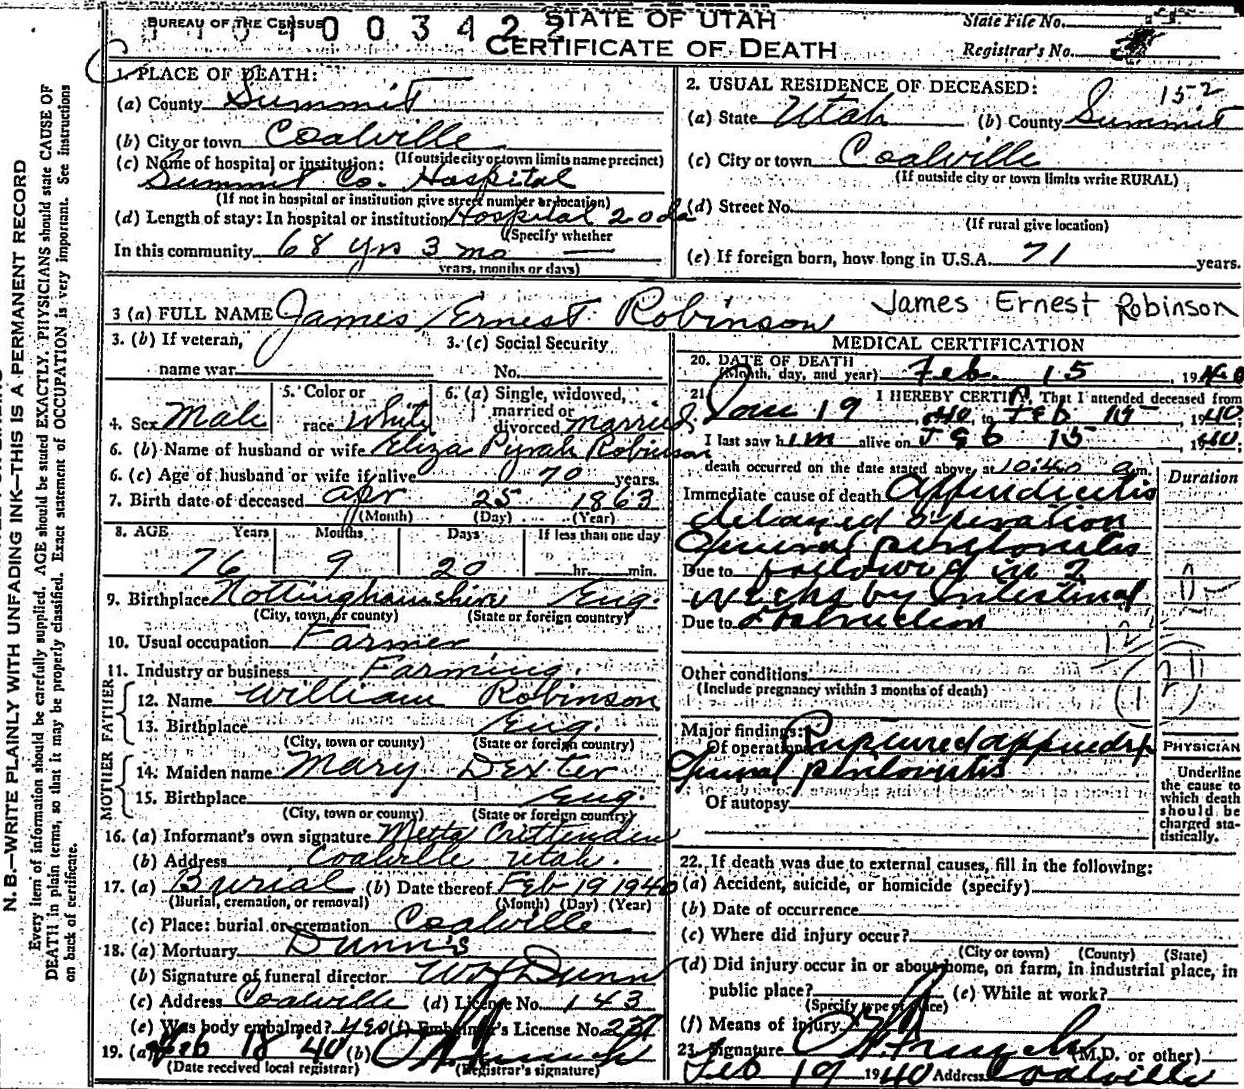 BUREAU OF THE CENSUS
STATE OF UTAH
CERTIFICATE OF DEATH
State File No.
Registrar's No.
N. B.—WRITE PLAINLY WITH UNFADING INK—THIS IS A PERMANENT RECORD
Every item of information should be carefully supplied. AGE should be stated EXACTLY. PHYSICIANS should state CAUSE OF
DEATH in plain terms, so that it may be properly classified. Exact statement of OCCUPATION is very important. See instructions
on back of certificate.
1. PLACE OF DEATH:
(a) County Summit
(b) City or town Coalville
(If outside city or town limits name precinct)
(c) Name of hospital or institution:
Summit Co. Hospital
(If not in hospital or institution give street number or location)
(d) Length of stay: In hospital or institution Hospital 20 da
(Specify whether
In this community 68 yrs 3 mo
years, months or days)
2. USUAL RESIDENCE OF DECEASED: 152
(a) State Utah (b) County Summit
(c) City or town Coalville
(If outside city or town limits write RURAL)
(d) Street No.
(If rural give location)
(e) If foreign born, how long in U.S.A. 71 years.
3 (a) FULL NAME James Ernest Robinson James Ernest Robinson
3. (b) If veteran,
name war
3. (c) Social Security
No.
4. Sex Male
5. Color or
race White
6. (a) Single, widowed,
married or
divorced married
6. (b) Name of husband or wife Eliza Pyrah Robinson
6. (c) Age of husband or wife if alive 70 years.
7. Birth date of deceased Apr 25 1863
(Month) (Day) (Year)
8. AGE Years Months Days If less than one day
76 9 20 hr. min.
9. Birthplace Nottinghamshire Eng.
(City, town, or county) (State or foreign country)
10. Usual occupation Farmer
11. Industry or business Farming.
FATHER
12. Name William Robinson
13. Birthplace Eng.
(City, town or county) (State or foreign country)
MOTHER
14. Maiden name Mary Dexter
15. Birthplace Eng.
(City, town or county) (State or foreign country)
16. (a) Informant's own signature Metta Crittenden
(b) Address Coalville Utah.
17. (a) Burial (b) Date thereof Feb 19 1940
(Burial, cremation, or removal) (Month) (Day) (Year)
(c) Place: burial or cremation Coalville
18. (a) Mortuary Dunn's
(b) Signature of funeral director Dunn
(c) Address Coalville (d) License No. 143
(e) Was body embalmed? yes (f) Embalmer's License No. 237
19. (a) Feb 18 40 (b)
(Date received local registrar) (Registrar's signature)
MEDICAL CERTIFICATION
20. DATE OF DEATH
(Month, day, and year) Feb. 15, 1940
21. I HEREBY CERTIFY, That I attended deceased from
Jan 19, 40, to Feb 15, 1940;
I last saw him alive on Feb 15 1940;
death occurred on the date stated above, at 10:40 a m.
Duration
Immediate cause of death Appendicitis
delayed operation
General peritonitis
Due to followed in 2
weeks by Intestinal
Due to obstruction
Other conditions
(Include pregnancy within 3 months of death)
Major findings:
Of operation Ruptured appendix
General peritonitis
Of autopsy
PHYSICIAN
Underline
the cause to
which death
should be
charged sta-
tistically.
22. If death was due to external causes, fill in the following:
(a) Accident, suicide, or homicide (specify)
(b) Date of occurrence
(c) Where did injury occur?
(City or town) (County) (State)
(d) Did injury occur in or about home, on farm, in industrial place, in
public place? (e) While at work?
(Specify type of place)
(f) Means of injury
23. Signature (M.D. or other)
Feb 19 1940 Address Coalville